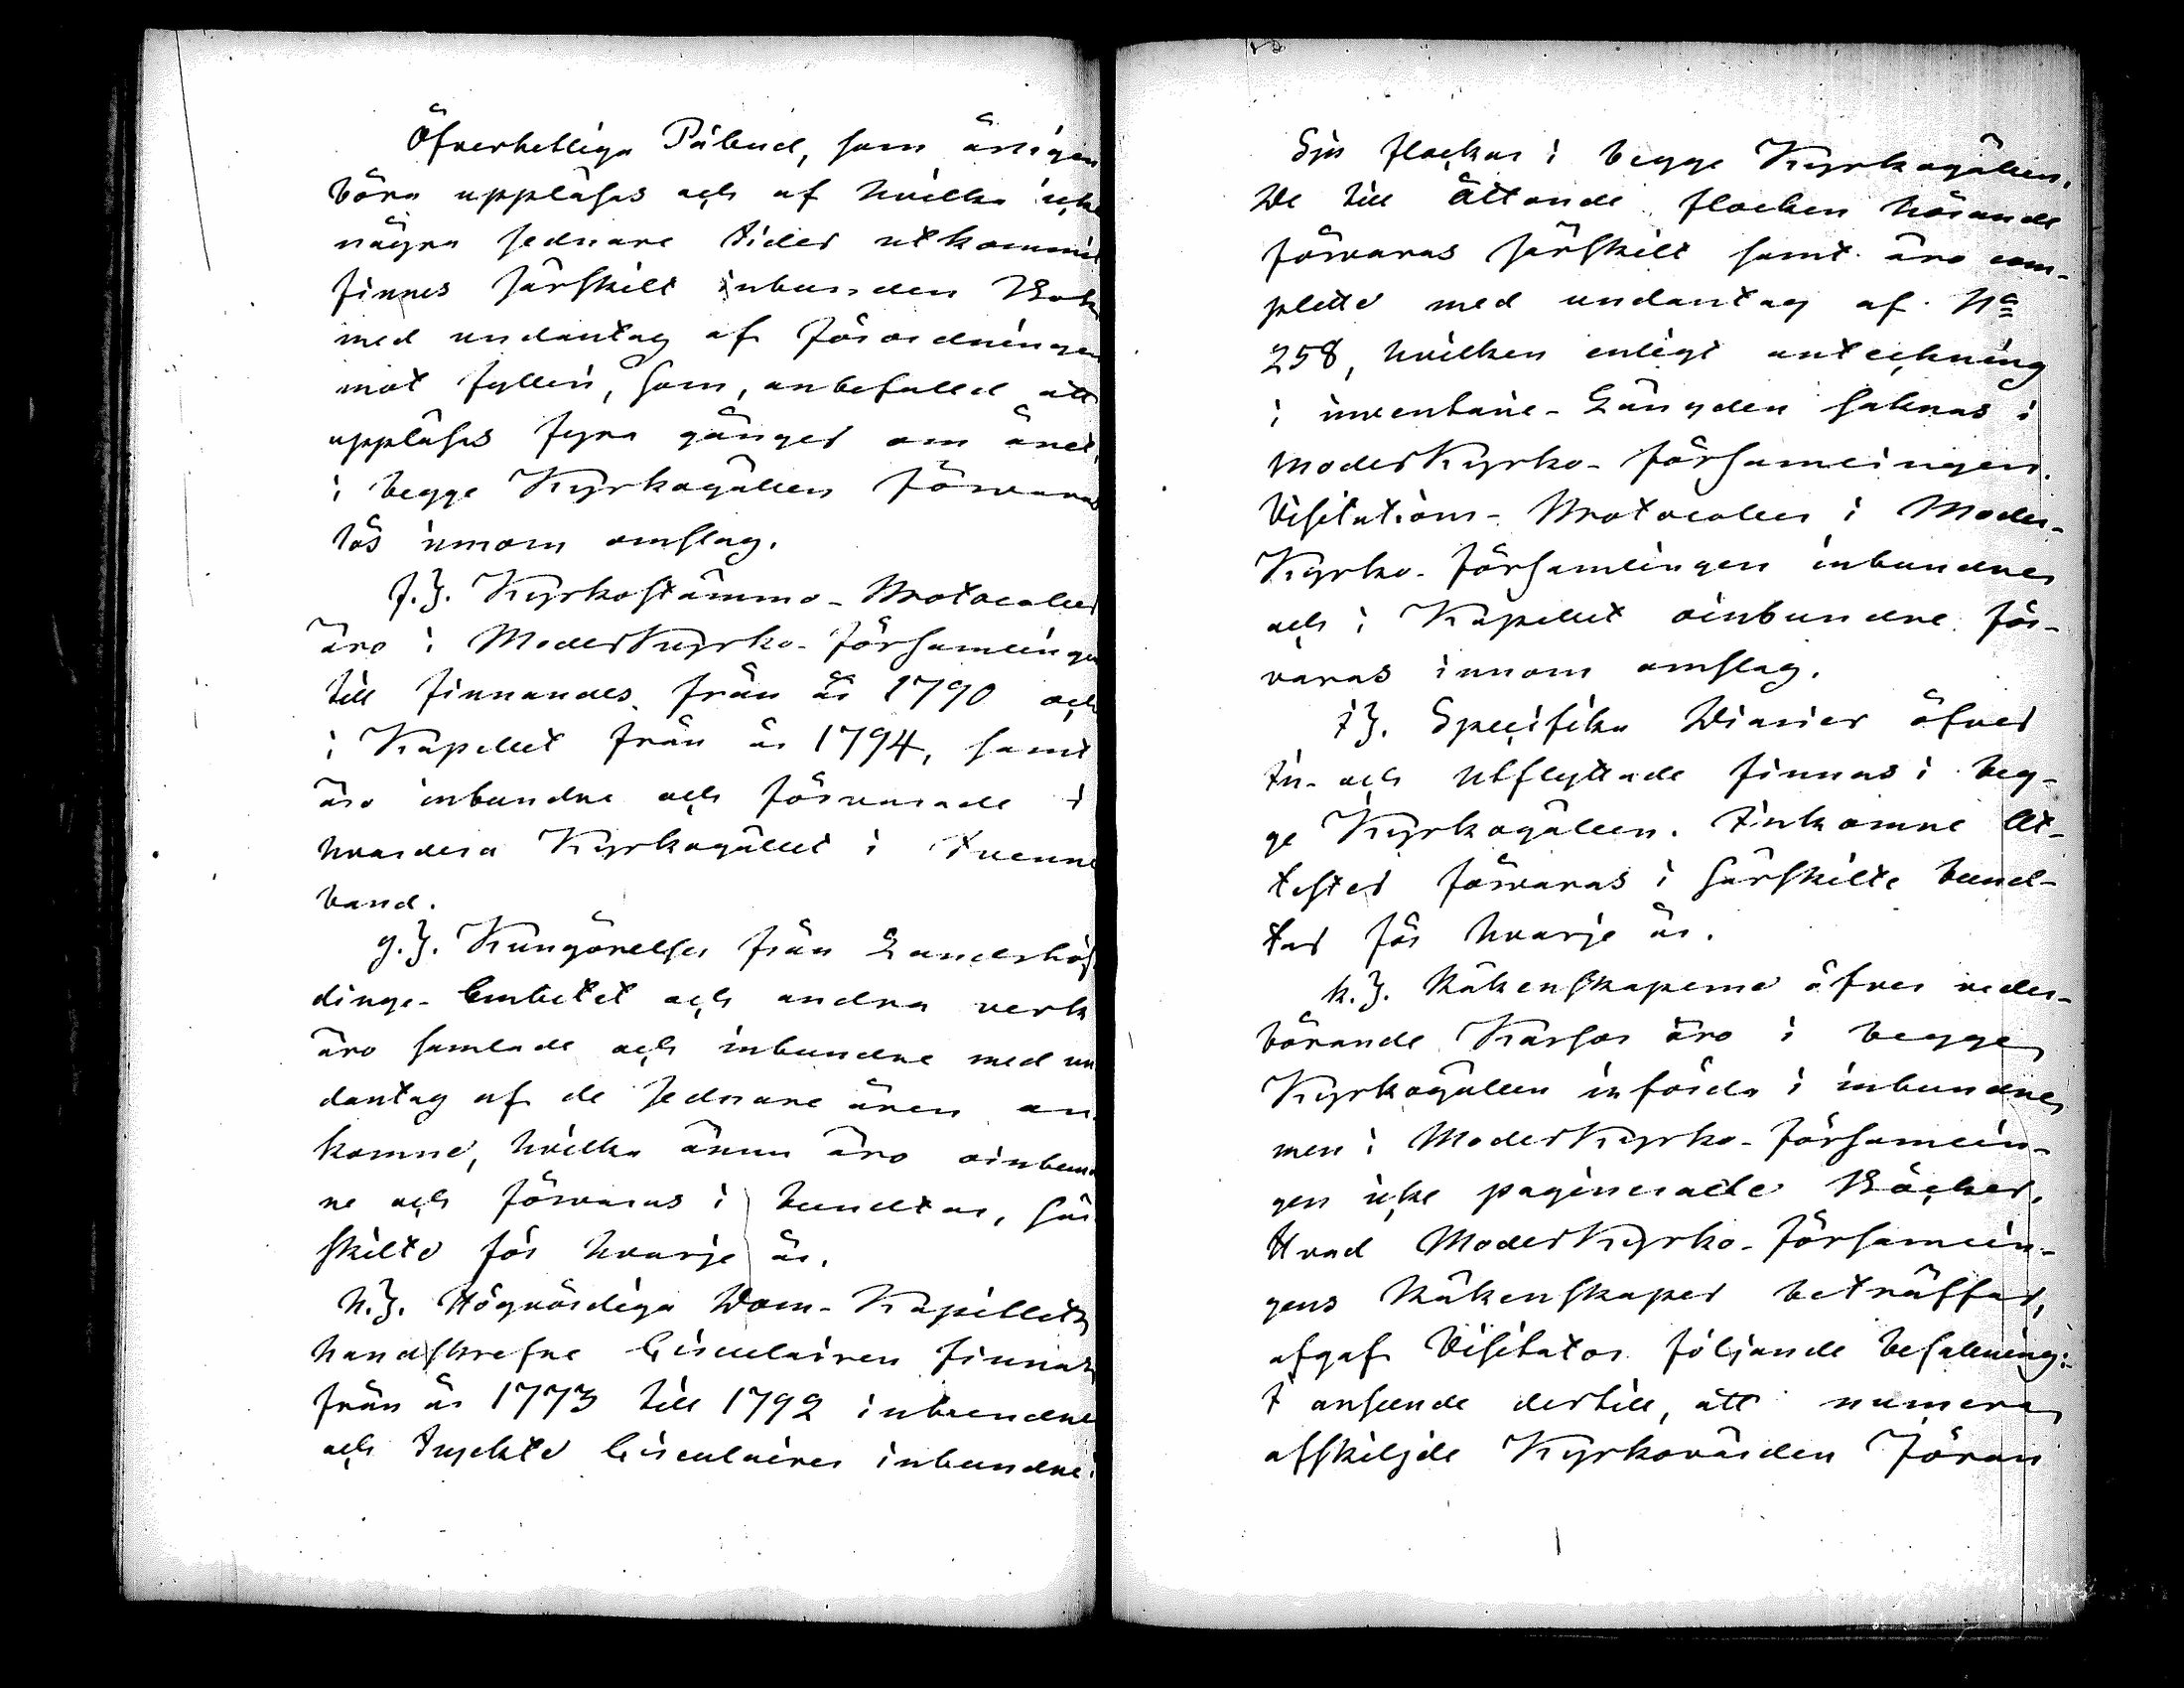 Öfverhetliga Påbud, som årligen
böra uppläsas och af hvilka icke
några sednare tider utkommit
finnes särskilt inbunden Bok
med undantag af Förordningen
mot fylleri, som, anbefalld att
uppläsas fyra gånger om året,
i begge Kyrkogällen förvaras
lös innom omslag.
f.). Kyrkostämmo-Protocoller
äro i Moderkyrko-församlingen
till finnandes från år 1790 och
i Kapellet från år 1794, samt
äro inbundne och förvarade i
hvardera Kyrkogället i tvenne
band.
g.). Kungörelser från Landshöf-
dinge-Embetet och andra verk
äro samlade och inbundne med un
dantag af de sednare åren an
komne, hvilka ännu äro oinbund
ne och förvaras i bundtar, sär
skilte för hvarje år.
h.). Högvördiga Dom-Kapitlets
handskrefne Circulairen finnas
från år 1773 till 1792 inbundne
och tryckte Circulairer inbundne i
Sju flockar i begge Kyrkogällen.
De till åttonde flocken hörande
förvaras särskilt samt äro com-
plette med undantag af No
258, hvilken enligt anteckning
i inventarie-Längden saknas i
Moderkyrko-församlingen.
Visitations-Protocoller i Moder-
Kyrko-församlingen inbundne
och i Kapellet oinbundne för-
varas innom omslag.
i). Specifika Diarier öfver
In- och Utflyttade finnas i beg-
ge Kyrkogällen. Inkomne At-
tester förvaras i särskilte bund-
tar för hvarje år.
k.). Räkenskaperne öfver veder-
börande Kassor äro i begge
Kyrkogällen införda i inbundne,
men i Moderkyrko-församlin-
gen icke paginerade Böcker.
Hvad Moderkyrko-församlin-
gens Räkenskaper beträffar,
afgaf Visitator följande befallning:
I anseende dertill, att numera
afskiljde Kyrkovärden Jöran